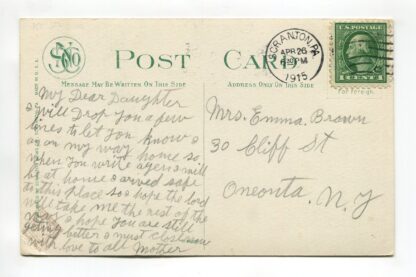 POST CARD
MESSAGE MAY BE WRITTEN ON THIS SIDE
ADDRESS ONLY ON THIS SIDE
SCRANTON, PA.
APR 26
6 PM
1915
1 CENT 1
For foreign
My Dear Daughter
I will Drop you a few
lines to let you know I
am on my way home so
when you write again I will
be at home I arved safe
to this place so I hope the lord
will take me the rest of the
way I hope you are still
geting better I must close now
with love to all Mother
Mrs. Emma Brown
30 Cliff St
Oneonta, N.Y